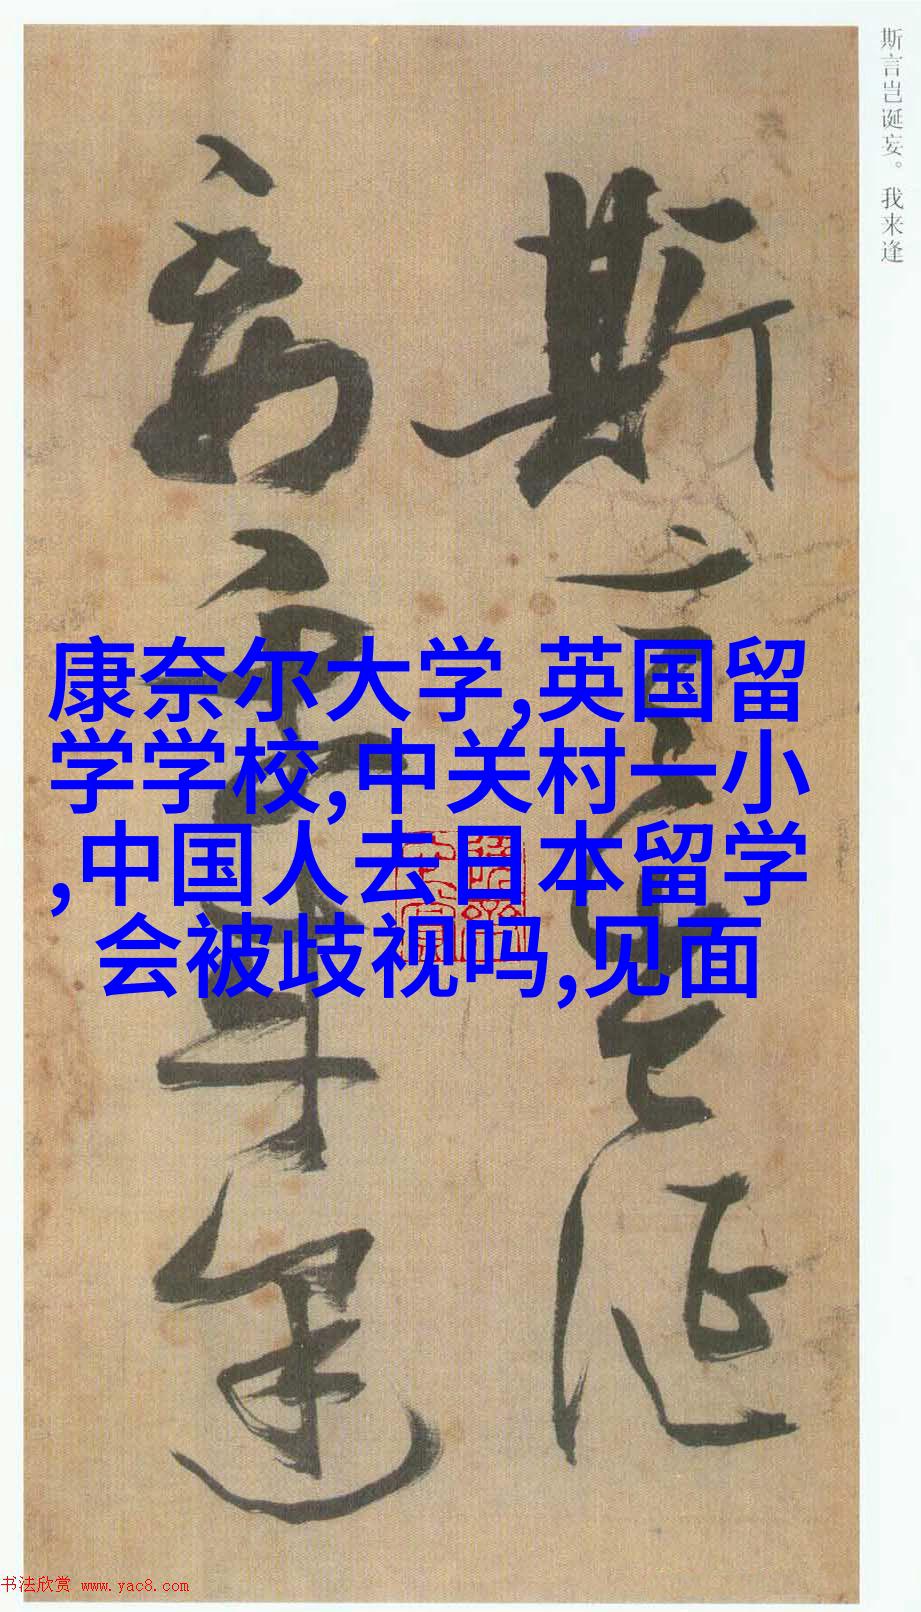 斯言岂诞妄。我来逢
斯言岂诞
妄我来逢
康奈尔大学,英国留
学学校,中关村一小
,中国人去日本留学
会被歧视吗,见面
书法欣赏 www.yac8.com